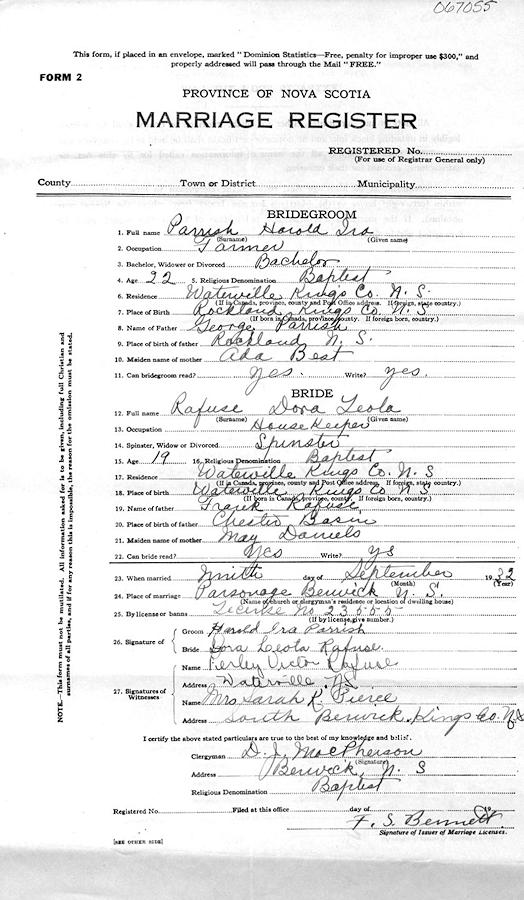 067055
This form, if placed in an envelope, marked "Dominion Statistics—Free, penalty for improper use $300," and
properly addressed will pass through the Mail "FREE."
FORM 2
PROVINCE OF NOVA SCOTIA
MARRIAGE REGISTER
REGISTERED No.
(For use of Registrar General only)
County Town or District Municipality
BRIDEGROOM
1. Full name Parrish Harold Ira
(Surname) (Given name)
2. Occupation Farmer
3. Bachelor, Widower or Divorced Bachelor
4. Age 22 5. Religious Denomination Baptist
6. Residence Waterville Kings Co. N. S.
(If in Canada, province, county and Post Office address. If foreign, state country.)
7. Place of Birth Rockland Kings Co. N. S.
(If born in Canada, province, county. If foreign born, country.)
8. Name of Father George Parrish
9. Place of birth of father Rockland N. S.
10. Maiden name of mother Ada Best
11. Can bridegroom read? Yes. Write? yes.
BRIDE
12. Full name Rafuse Dora Leola
(Surname) (Given name)
13. Occupation House Keeper
14. Spinster, Widow or Divorced Spinster
15. Age 19 16. Religious Denomination Baptist
17. Residence Waterville Kings Co. N. S
(If in Canada, province, county and Post Office address. If foreign, state country.)
18. Place of birth Waterville Kings Co. N. S
(If born in Canada, province, county. If foreign born, country.)
19. Name of father Frank Rafuse
20. Place of birth of father Chester Basin
21. Maiden name of mother May Daniels
22. Can bride read? Yes Write? Ys
23. When married Ninth day of September 1932
(Month) (Year)
24. Place of marriage Parsonage Berwick N. S.
(Name of church or clergyman's residence or location of dwelling house)
25. By license or banns License No 23555
(If by license, give number.)
26. Signature of Groom Harold Ira Parrish
Bride Dora Leola Rafuse
27. Signatures of Witnesses Name Perley Victor Rafuse
Address Waterville, NS
Name Mrs Sarah K. Pierce
Address South Berwick, Kings Co. N.S
I certify the above stated particulars are true to the best of my knowledge and belief.
Clergyman D. J. MacPherson
(Signature)
Address Berwick, N. S
Religious Denomination Baptist
Registered No. Filed at this office day of 19
F. S. Bennett
Signature of Issuer of Marriage Licenses.
[SEE OTHER SIDE]
NOTE.—This form must not be mutilated. All information asked for is to be given, including full Christian and
surnames of all parties, and if for any reason this is impossible, the reason for the omission must be stated.